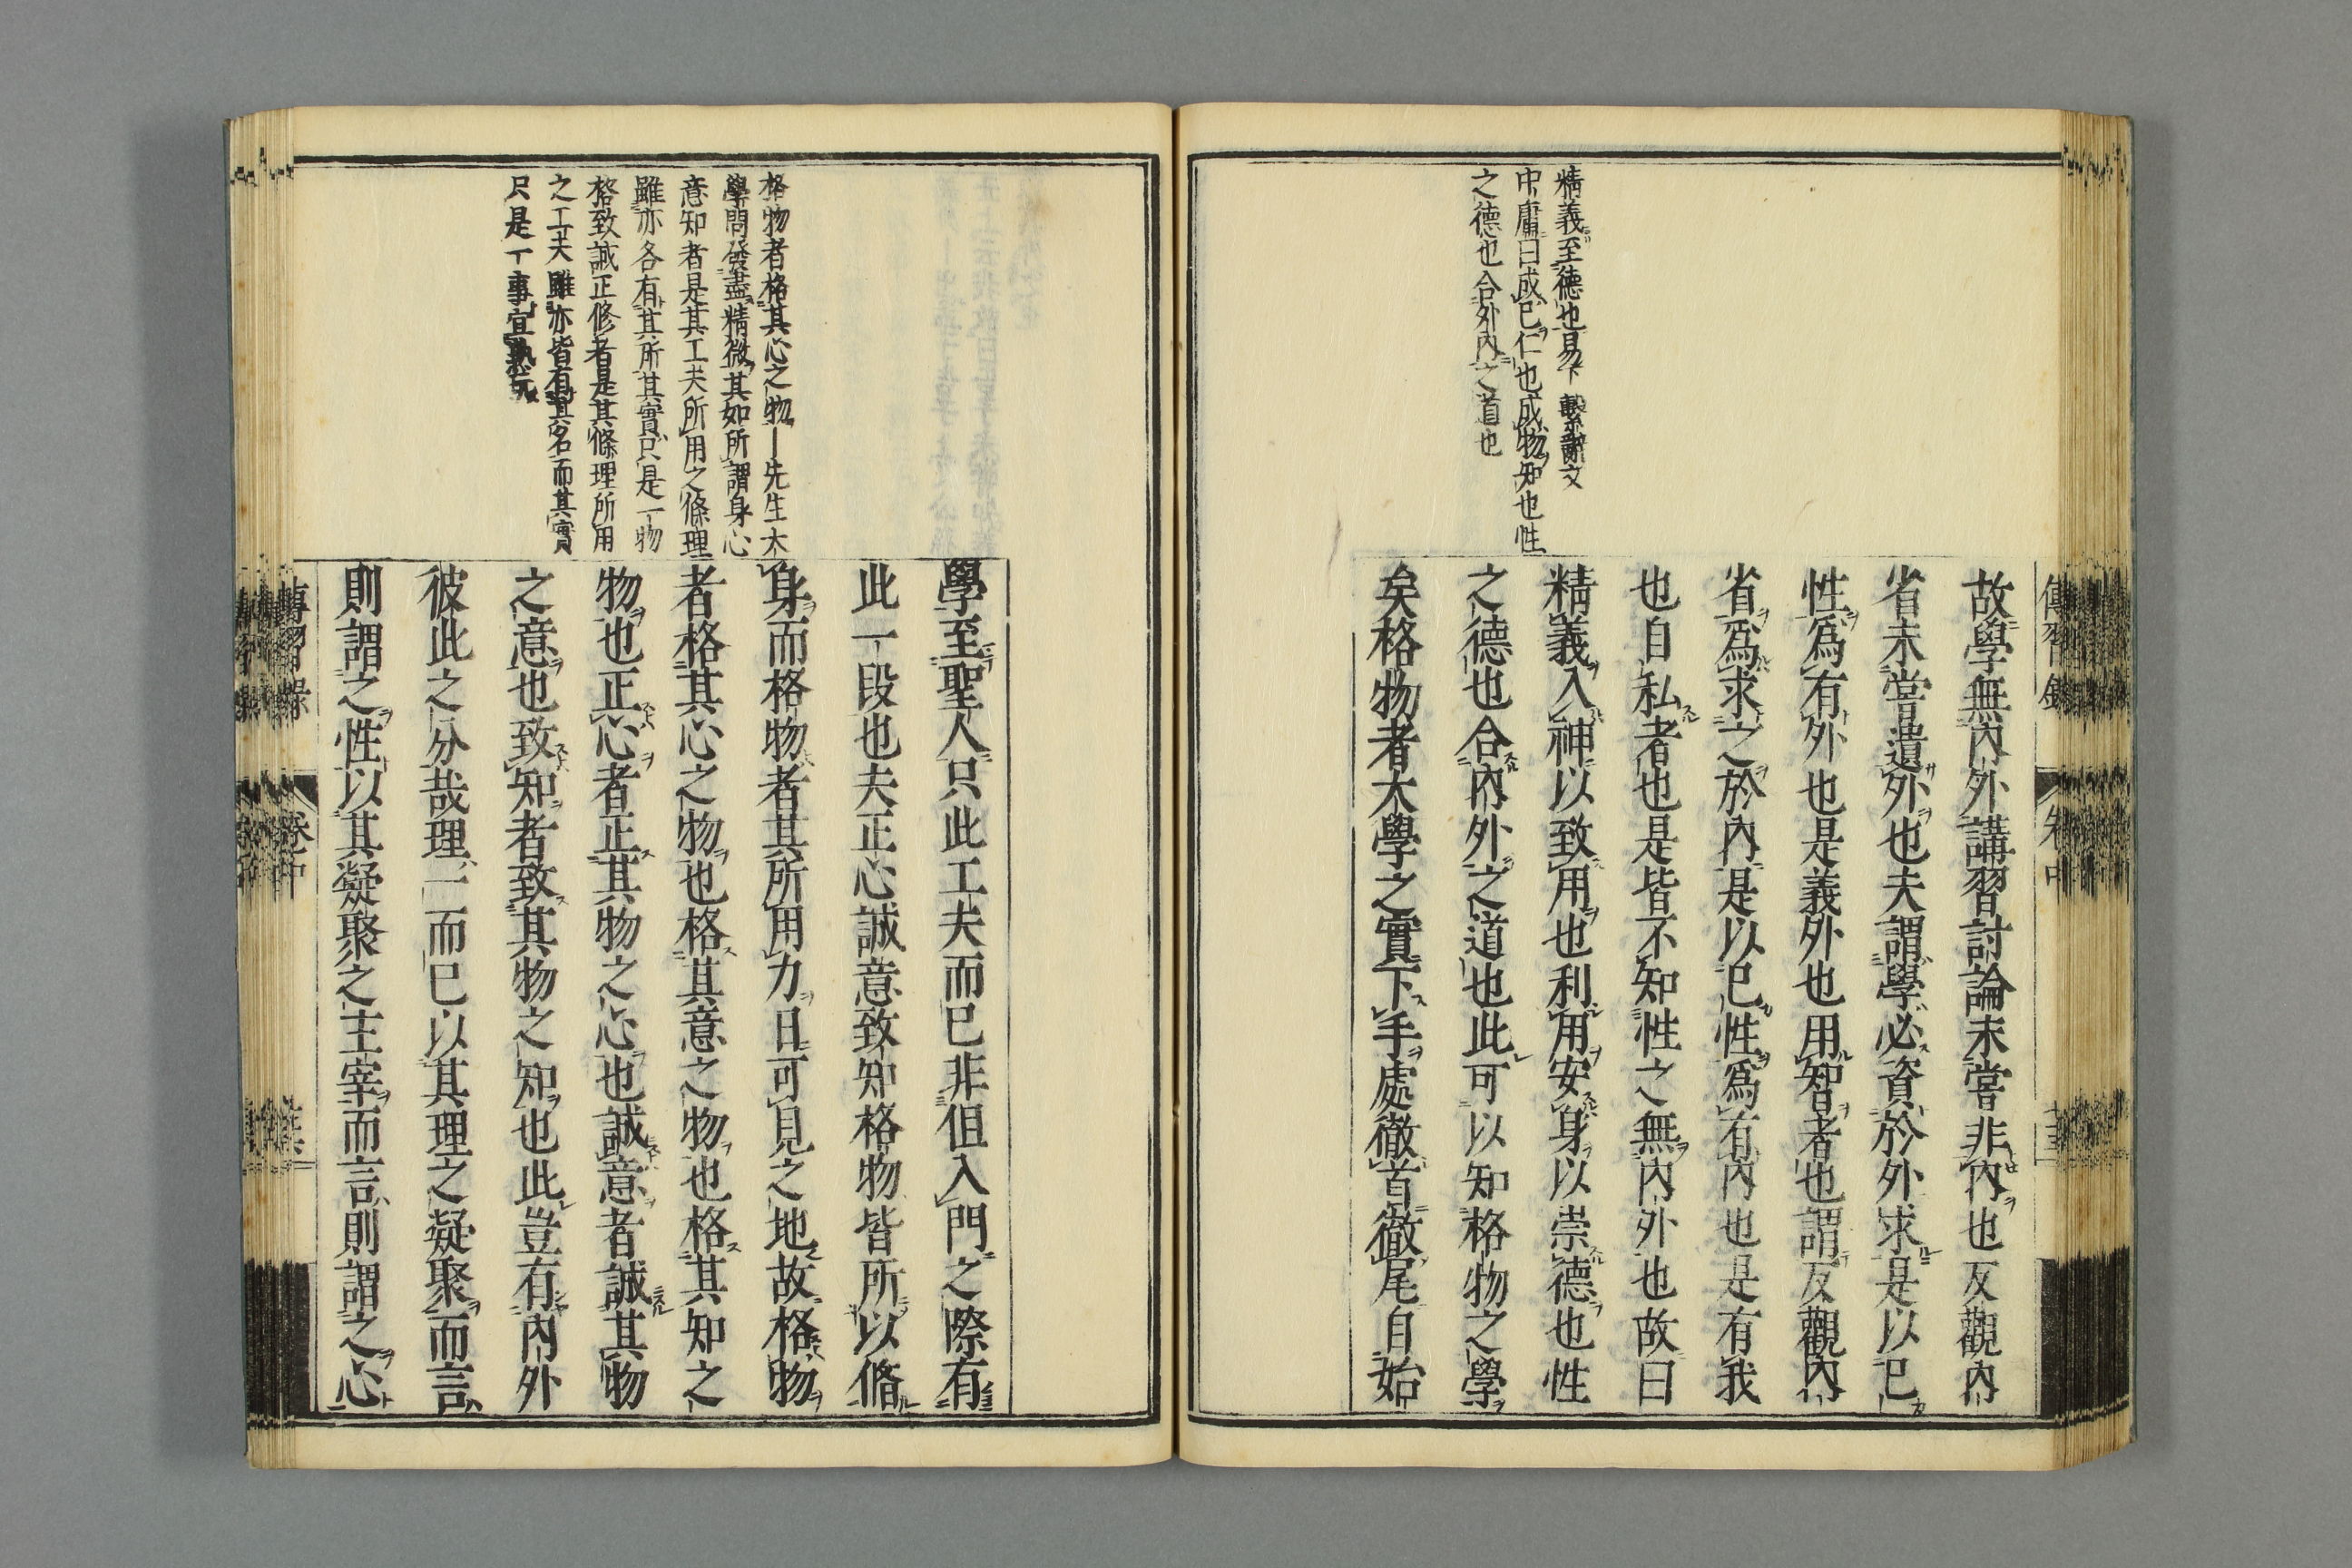 精義至德也易下繫辭文
中庸曰成己仁也成物知也性
之德也合外內之道也
故學無內外講習討論未嘗非內也反觀內
省未嘗遺外也夫謂學必資於外求是以己
性爲有外也是義外也用智者也謂反觀內
省爲求之於內是以己性爲有內也是有我
也自私者也是皆不知性之無內外也故曰
精義入神以致用也利用安身以崇德也性
之德也合內外之道也此可以知格物之學
矣格物者大學之實下手處徹首徹尾自始
格物者格其心之物ー先生大
學問發盡精微其如所謂身心
意知者是其工夫所用之條理
雖亦各有其所其實只是一物
格致誠正修者是其條理所用
之工夫雖亦皆有其名而其實
只是一事宜熟玩
學至聖人只此工夫而已非但入門之際有
此一段也夫正心誠意致知格物皆所以脩
身而格物者其所用力日可見之地故格物
者格其心之物也格其意之物也格其知之
物也正心者正其物之心也誠意者誠其物
之意也致知者致其物之知也此豈有內外
彼此之分哉理一而已以其理之凝聚而言
則謂之性以其凝聚之主宰而言則謂之心
傳習錄 卷中